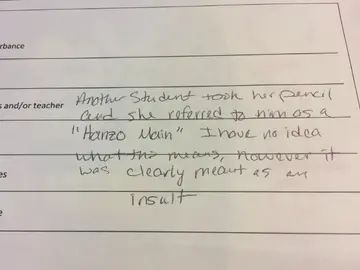 rbance
s and/or teacher
Another Student took her pencil
and she referred to him as a
"Hanzo Main" I have no idea
what this means, however it
es
was clearly meant as an
e
insult